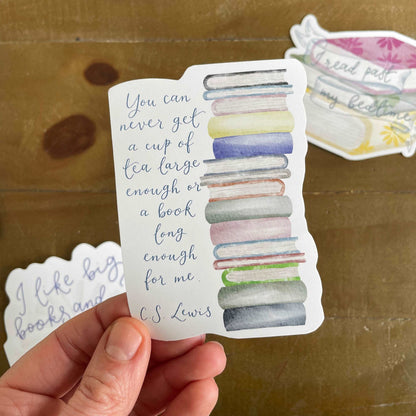 You can
never get
a cup of
tea large
enough or
a book
long
enough
for me.
C.S. Lewis
I read past
my bedtime
I like big
books and